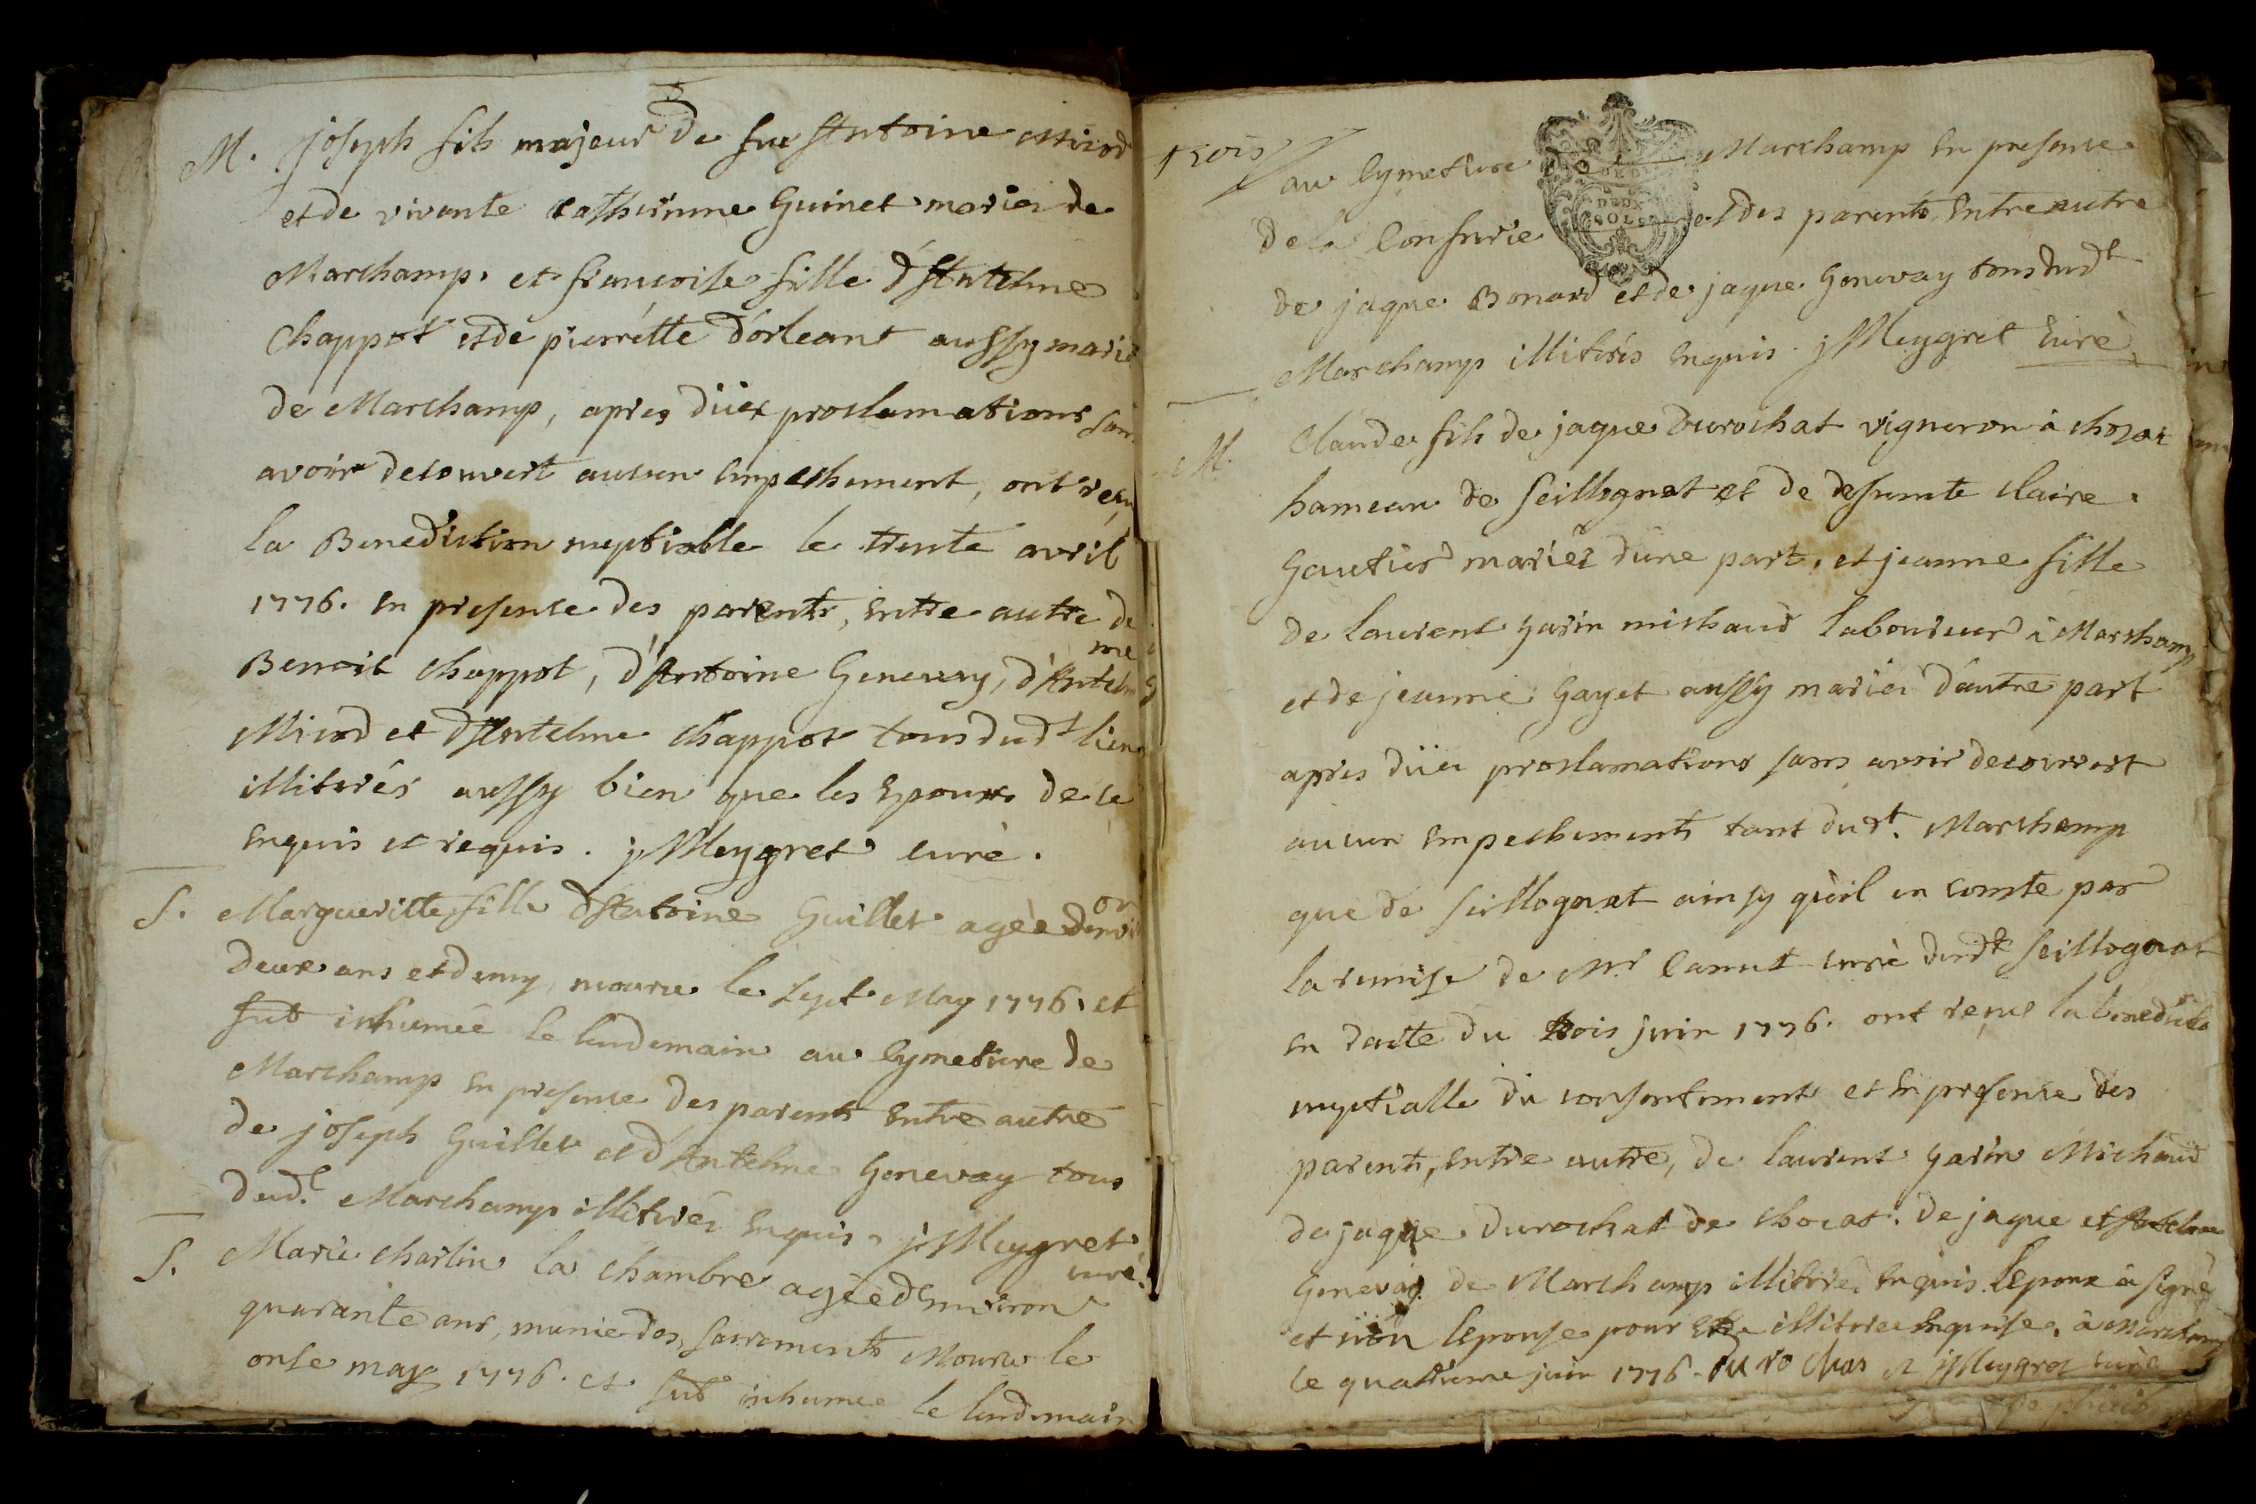 M. joseph fils majeur de feu Antoine Miod
et de vivante catherinne Guinet mariés de
Marchamp. et francoise fille d'Antelme
Chappot et de pierrette d'orleant aussy marié
de Marchamp, apres duer proclamations san
avoir decouvert aucun empechement, ont reçu
la Benediction nuptialle le trente avril
1776. en presence des parents, entre autre de
Benoit chappot, d'Antoine Genevay, d'Antelme
Miod et d'Antelme chappot tous dudt lieu
illiterés aussy bien que les Epoux de ce
enquis et requis. j Meygret curè.
S. Margueritte fille d'Antoine Guillet agée d'envi on
deux ans et demy, mouru le sept May 1776. et
fut inhumée le lendemain au Cymetiere de
Marchamp en presence des parents entre autre
de joseph Guillet et d'Antelme Genevay tous
dudt Marchamp illiterés enquis. j Meygret curé.
S. Marie charlin la chambre agée d'environ
quarante ans, munie des sacrements Mouru le
onse may 1776. et fut inhumee le lendemain
trois
au Cymetiere de Marchamp en presence
DEUX SOLS
de la Confrerie et des parents entre autre
de jaque Bonard et de jaque Genevay tous dudt
Marchamp illiterés enquis. j Meygret curè
M. Claude fils de jaque Durochat vigneron à chosas
hameau de Seillognat et de defunte claire
Gautier mariés d'une part. et jeanne fille
de laurent garin michaud laboureur à Marchamp
et de jeanne Gayet aussy mariés d'autre part
apres duer proclamations sans avoir decouvert
aucun empechements tant dudt. Marchamp
que de seillognat ainsy qu'il en conste par
la remise de Mr Canut curè dudt Seillognat
en datte du trois juin 1776. ont reçue la benediction
nuptialle du consentement et en presence des
parents, entre autre, de laurent garin Michaud
de jaque durochat de chosas. de jaque et Antelme
Genevay de Marchamp illiterés enquis. l'epoux a signé
et non l'epouse pour etre illiteree enquise. à Marchamp
le quatrieme juin 1776. du ro chas j Meygret curè